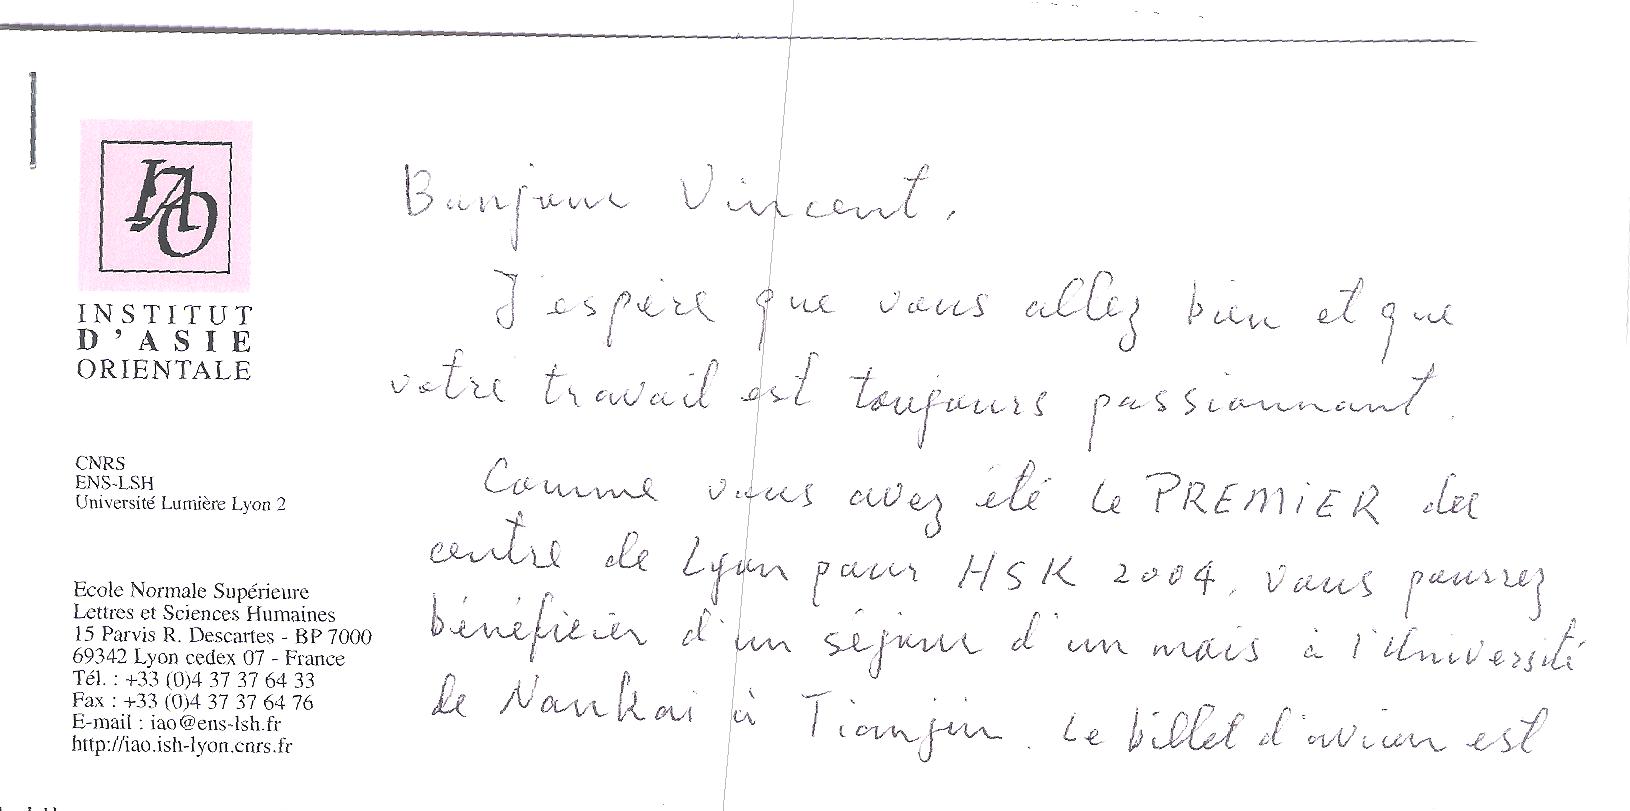 IAO
INSTITUT
D'ASIE
ORIENTALE
CNRS
ENS-LSH
Université Lumière Lyon 2
Ecole Normale Supérieure
Lettres et Sciences Humaines
15 Parvis R. Descartes - BP 7000
69342 Lyon cedex 07 - France
Tél. : +33 (0)4 37 37 64 33
Fax : +33 (0)4 37 37 64 76
E-mail : iao@ens-lsh.fr
http://iao.ish-lyon.cnrs.fr
Bonjour Vincent,
J'espère que vous allez bien et que
votre travail est toujours passionnant.
Comme vous avez été le PREMIER du
centre de Lyon pour HSK 2004, vous pourrez
bénéficier d'un séjour d'un mois à l'Université
de Nankai à Tianjin. Le billet d'avion est